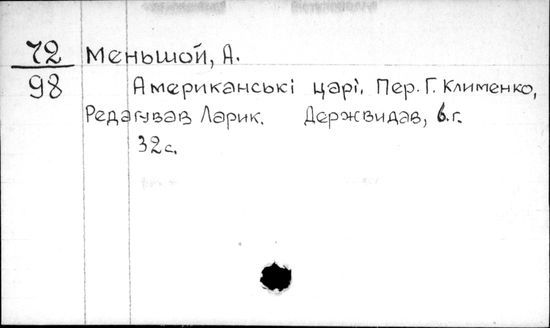 72 Меньшой, А.
98 Американські царі. Пер. Г. Клименко,
Редагував Ларик. Держвидав, б.г.
32с.